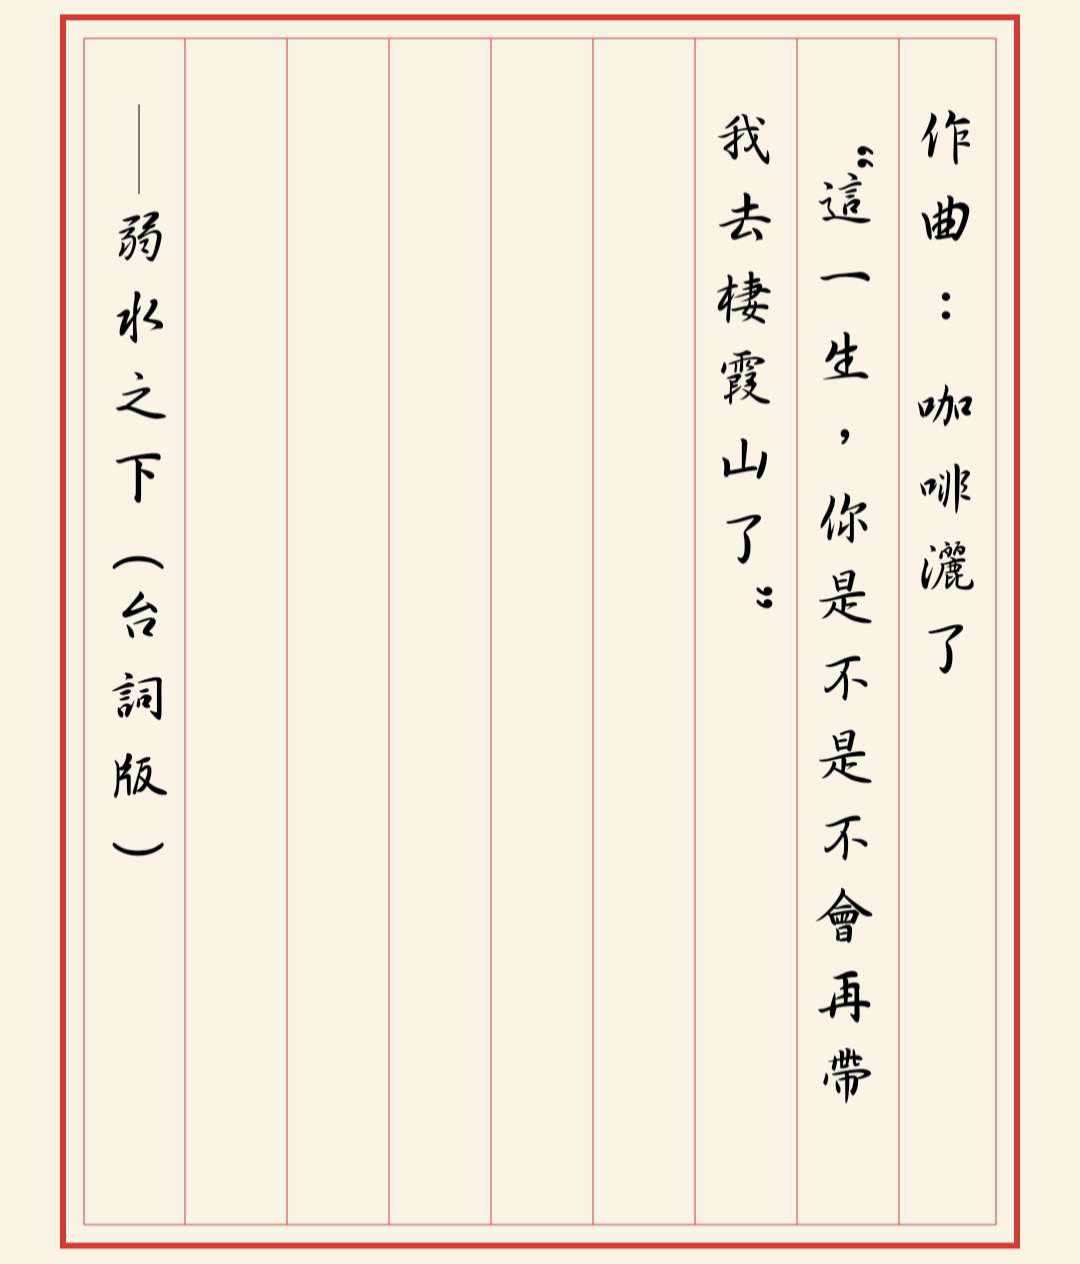 作曲：咖啡灑了
“這一生，你是不是不會再帶
我去棲霞山了”
——弱水之下（台詞版）